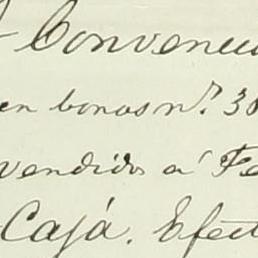 Convencio
en bonos n.º 30
vendidos á Fe
Cajá. Efect